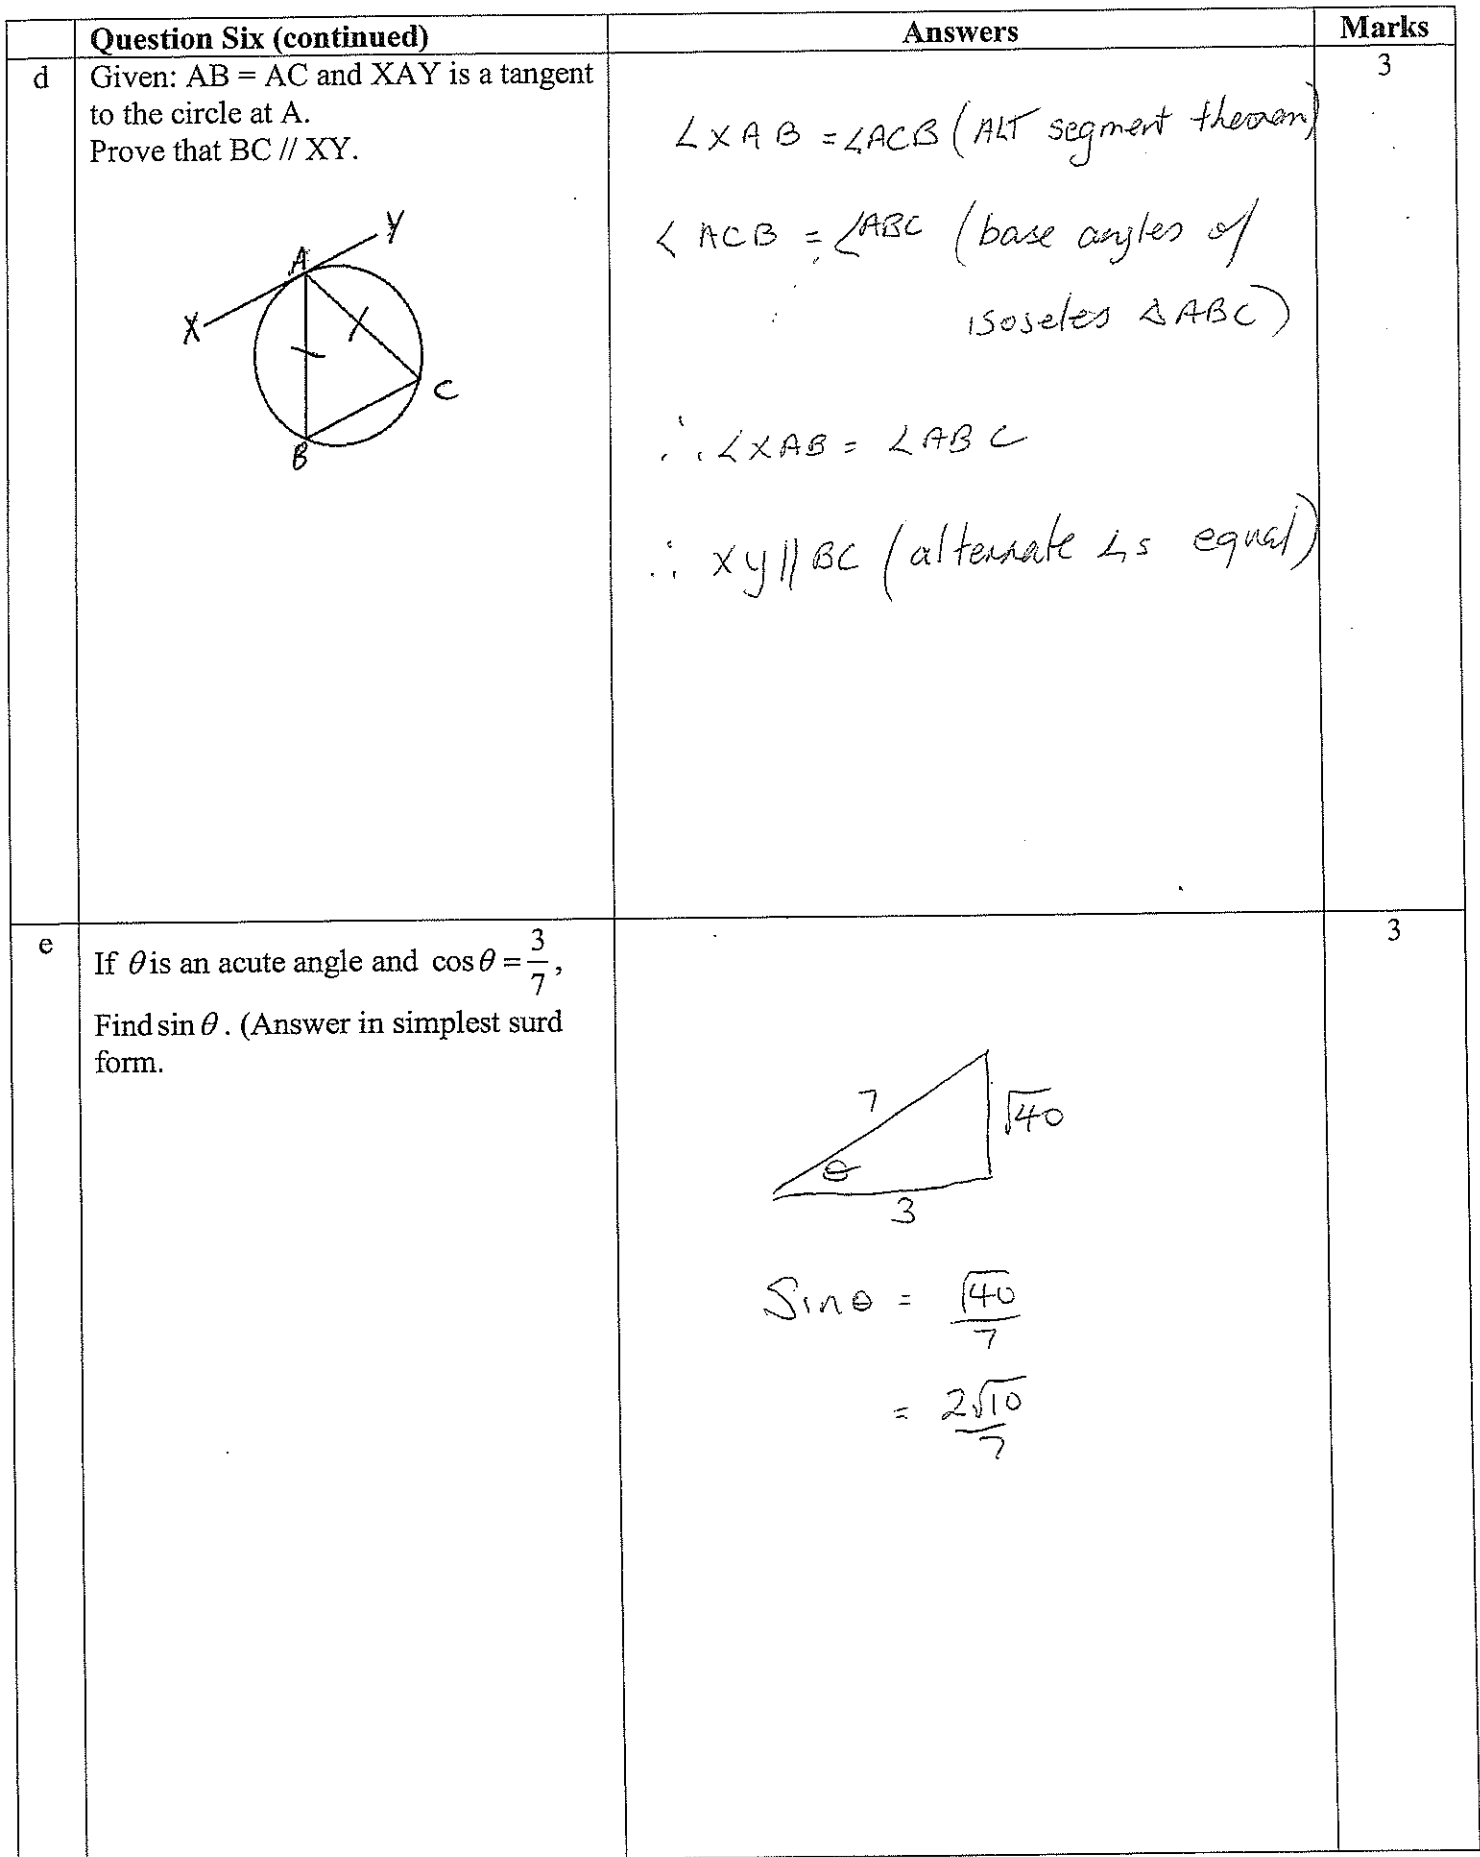 Question Six (continued)
Answers
Marks
d
Given: AB = AC and XAY is a tangent
to the circle at A.
Prove that BC // XY.
Y
A
X
C
B
∠XAB = ∠ACB (ALT segment theorem)
∠ACB = ∠ABC (base angles of
isoseles ΔABC)
∴ ∠XAB = ∠ABC
∴ XY || BC (alternate ∠s equal)
3
e
If θ is an acute angle and cos θ = 3/7,
Find sin θ. (Answer in simplest surd
form.
7
√40
θ
3
Sin θ = √40/7
= 2√10/7
3